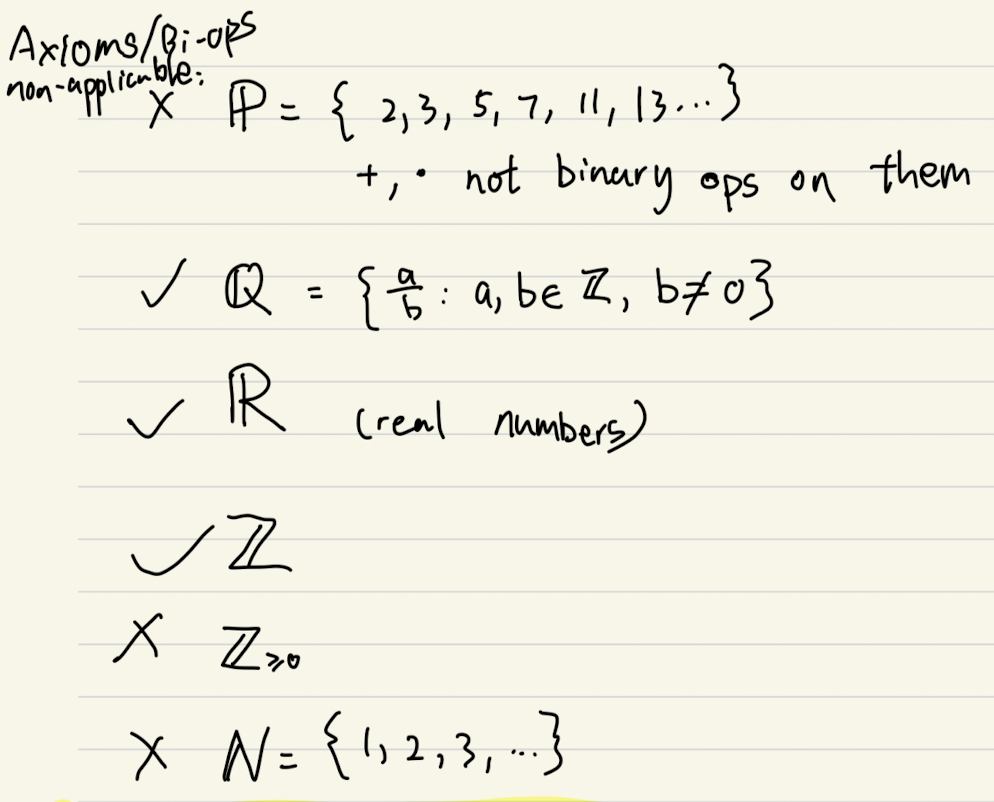 Axioms/Bi-ops
non-applicable:
X ℙ = { 2, 3, 5, 7, 11, 13... }
+, · not binary ops on them
✓ ℚ = { a/b : a, b ∈ ℤ, b ≠ 0 }
✓ ℝ (real numbers)
✓ ℤ
X ℤ≥0
X ℕ = { 1, 2, 3, ... }